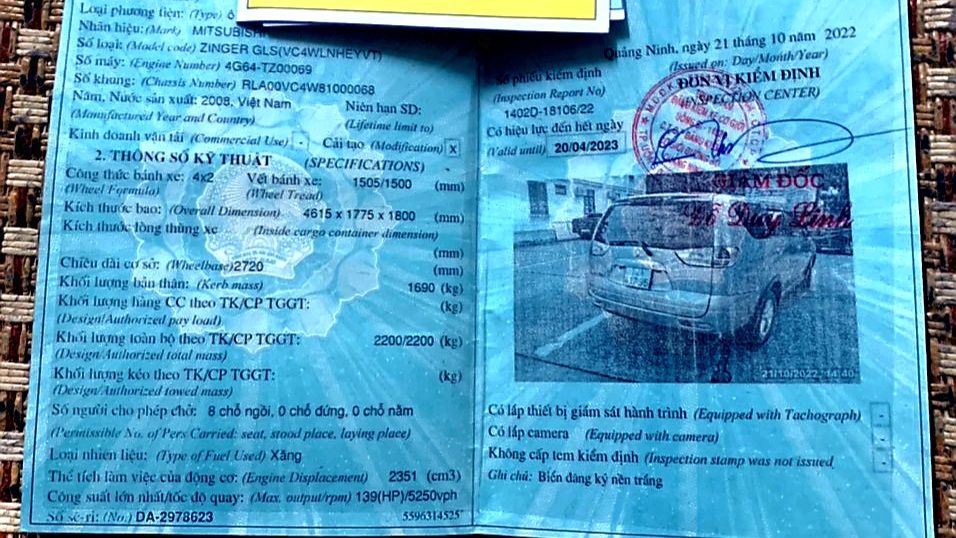 Loại phương tiện: (Type) ô
Nhãn hiệu: (Mark) MITSUBISHI
Số loại: (Model code) ZINGER GLS(VC4WLNHEYVT)
Số máy: (Engine Number) 4G64-TZ00069
Số khung: (Chassis Number) RLA00VC4W81000068
Năm, Nước sản xuất: 2008, Việt Nam Niên hạn SD:
(Manufactured Year and Country) (Lifetime limit to)
Kinh doanh vận tải (Commercial Use) - Cải tạo (Modification) x
2. THÔNG SỐ KỸ THUẬT (SPECIFICATIONS)
Công thức bánh xe: 4x2 Vết bánh xe: 1505/1500 (mm)
(Wheel Formula) (Wheel Tread)
Kích thước bao: (Overall Dimension) 4615 x 1775 x 1800 (mm)
Kích thước lòng thùng xe (Inside cargo container dimension)
(mm)
Chiều dài cơ sở: (Wheelbase) 2720 (mm)
Khối lượng bản thân: (Kerb mass) 1690 (kg)
Khối lượng hàng CC theo TK/CP TGGT: (kg)
(Design/Authorized pay load)
Khối lượng toàn bộ theo TK/CP TGGT: 2200/2200 (kg)
(Design/Authorized total mass)
Khối lượng kéo theo TK/CP TGGT: (kg)
(Design/Authorized towed mass)
Số người cho phép chở: 8 chỗ ngồi, 0 chỗ đứng, 0 chỗ nằm
(Permissible No. of Pers Carried: seat, stood place, laying place)
Loại nhiên liệu: (Type of Fuel Used) Xăng
Thể tích làm việc của động cơ: (Engine Displacement) 2351 (cm3)
Công suất lớn nhất/tốc độ quay: (Max. output/rpm) 139(HP)/5250vph
Số sê-ri: (No.) DA-2978623 5596314525
Quảng Ninh, ngày 21 tháng 10 năm 2022
(Issued on: Day/Month/Year)
Số phiếu kiểm định ĐƠN VỊ KIỂM ĐỊNH
(Inspection Report No) (INSPECTION CENTER)
1402D-18106/22
Có hiệu lực đến hết ngày
(Valid until) 20/04/2023
GIÁM ĐỐC
Đỗ Duy Linh
21/10/2022 14:40
Có lắp thiết bị giám sát hành trình (Equipped with Tachograph) -
Có lắp camera (Equipped with camera) -
Không cấp tem kiểm định (Inspection stamp was not issued -
Ghi chú: Biển đăng ký nền trắng